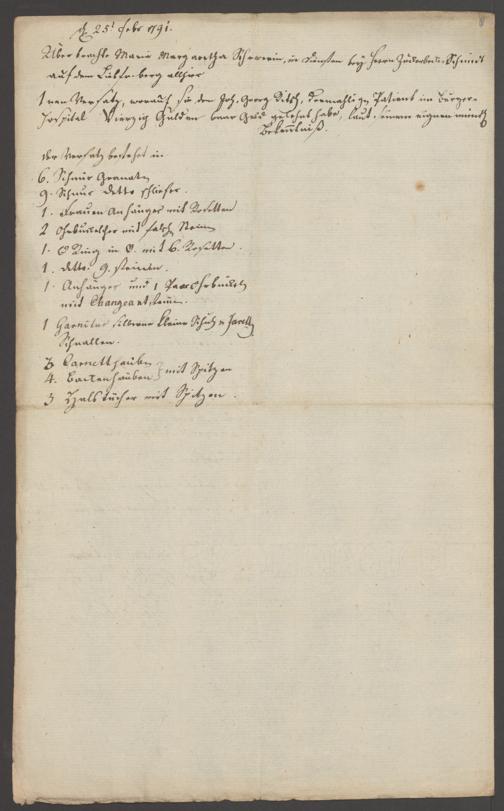 d. 25t Febr 1791.
8
Überbrachte Maria Margaretha Schererin, in Diensten bey Herrn Zuckerbeck. Schmidt
auf dem Liebfr. berg allhier
1 nen Versatz, worauf sie dem Joh. Georg Ditsch, dermahligen Patient im Burger-
hospital Vierzig Gulden baar Geld gelehnt habe, laut seinem eignen mündl
Bekenntniß.
der Versatz bestehet in
6. Schnur Granaten
9. Schnur detto
1. Frauen Anhänger mit Rosetten
2 mit falsch Steinen
1. Ring in mit 6. Rosetten.
1. detto 9. steinen.
1. Anhänger und 1 Paar
mit Changeant steinen.
1 Garnitur silberne kleine Schuh
Schnallen.
3 Cornetthauben
4. Backenhauben } mit Spitzen
3 Halstücher mit Spitzen.